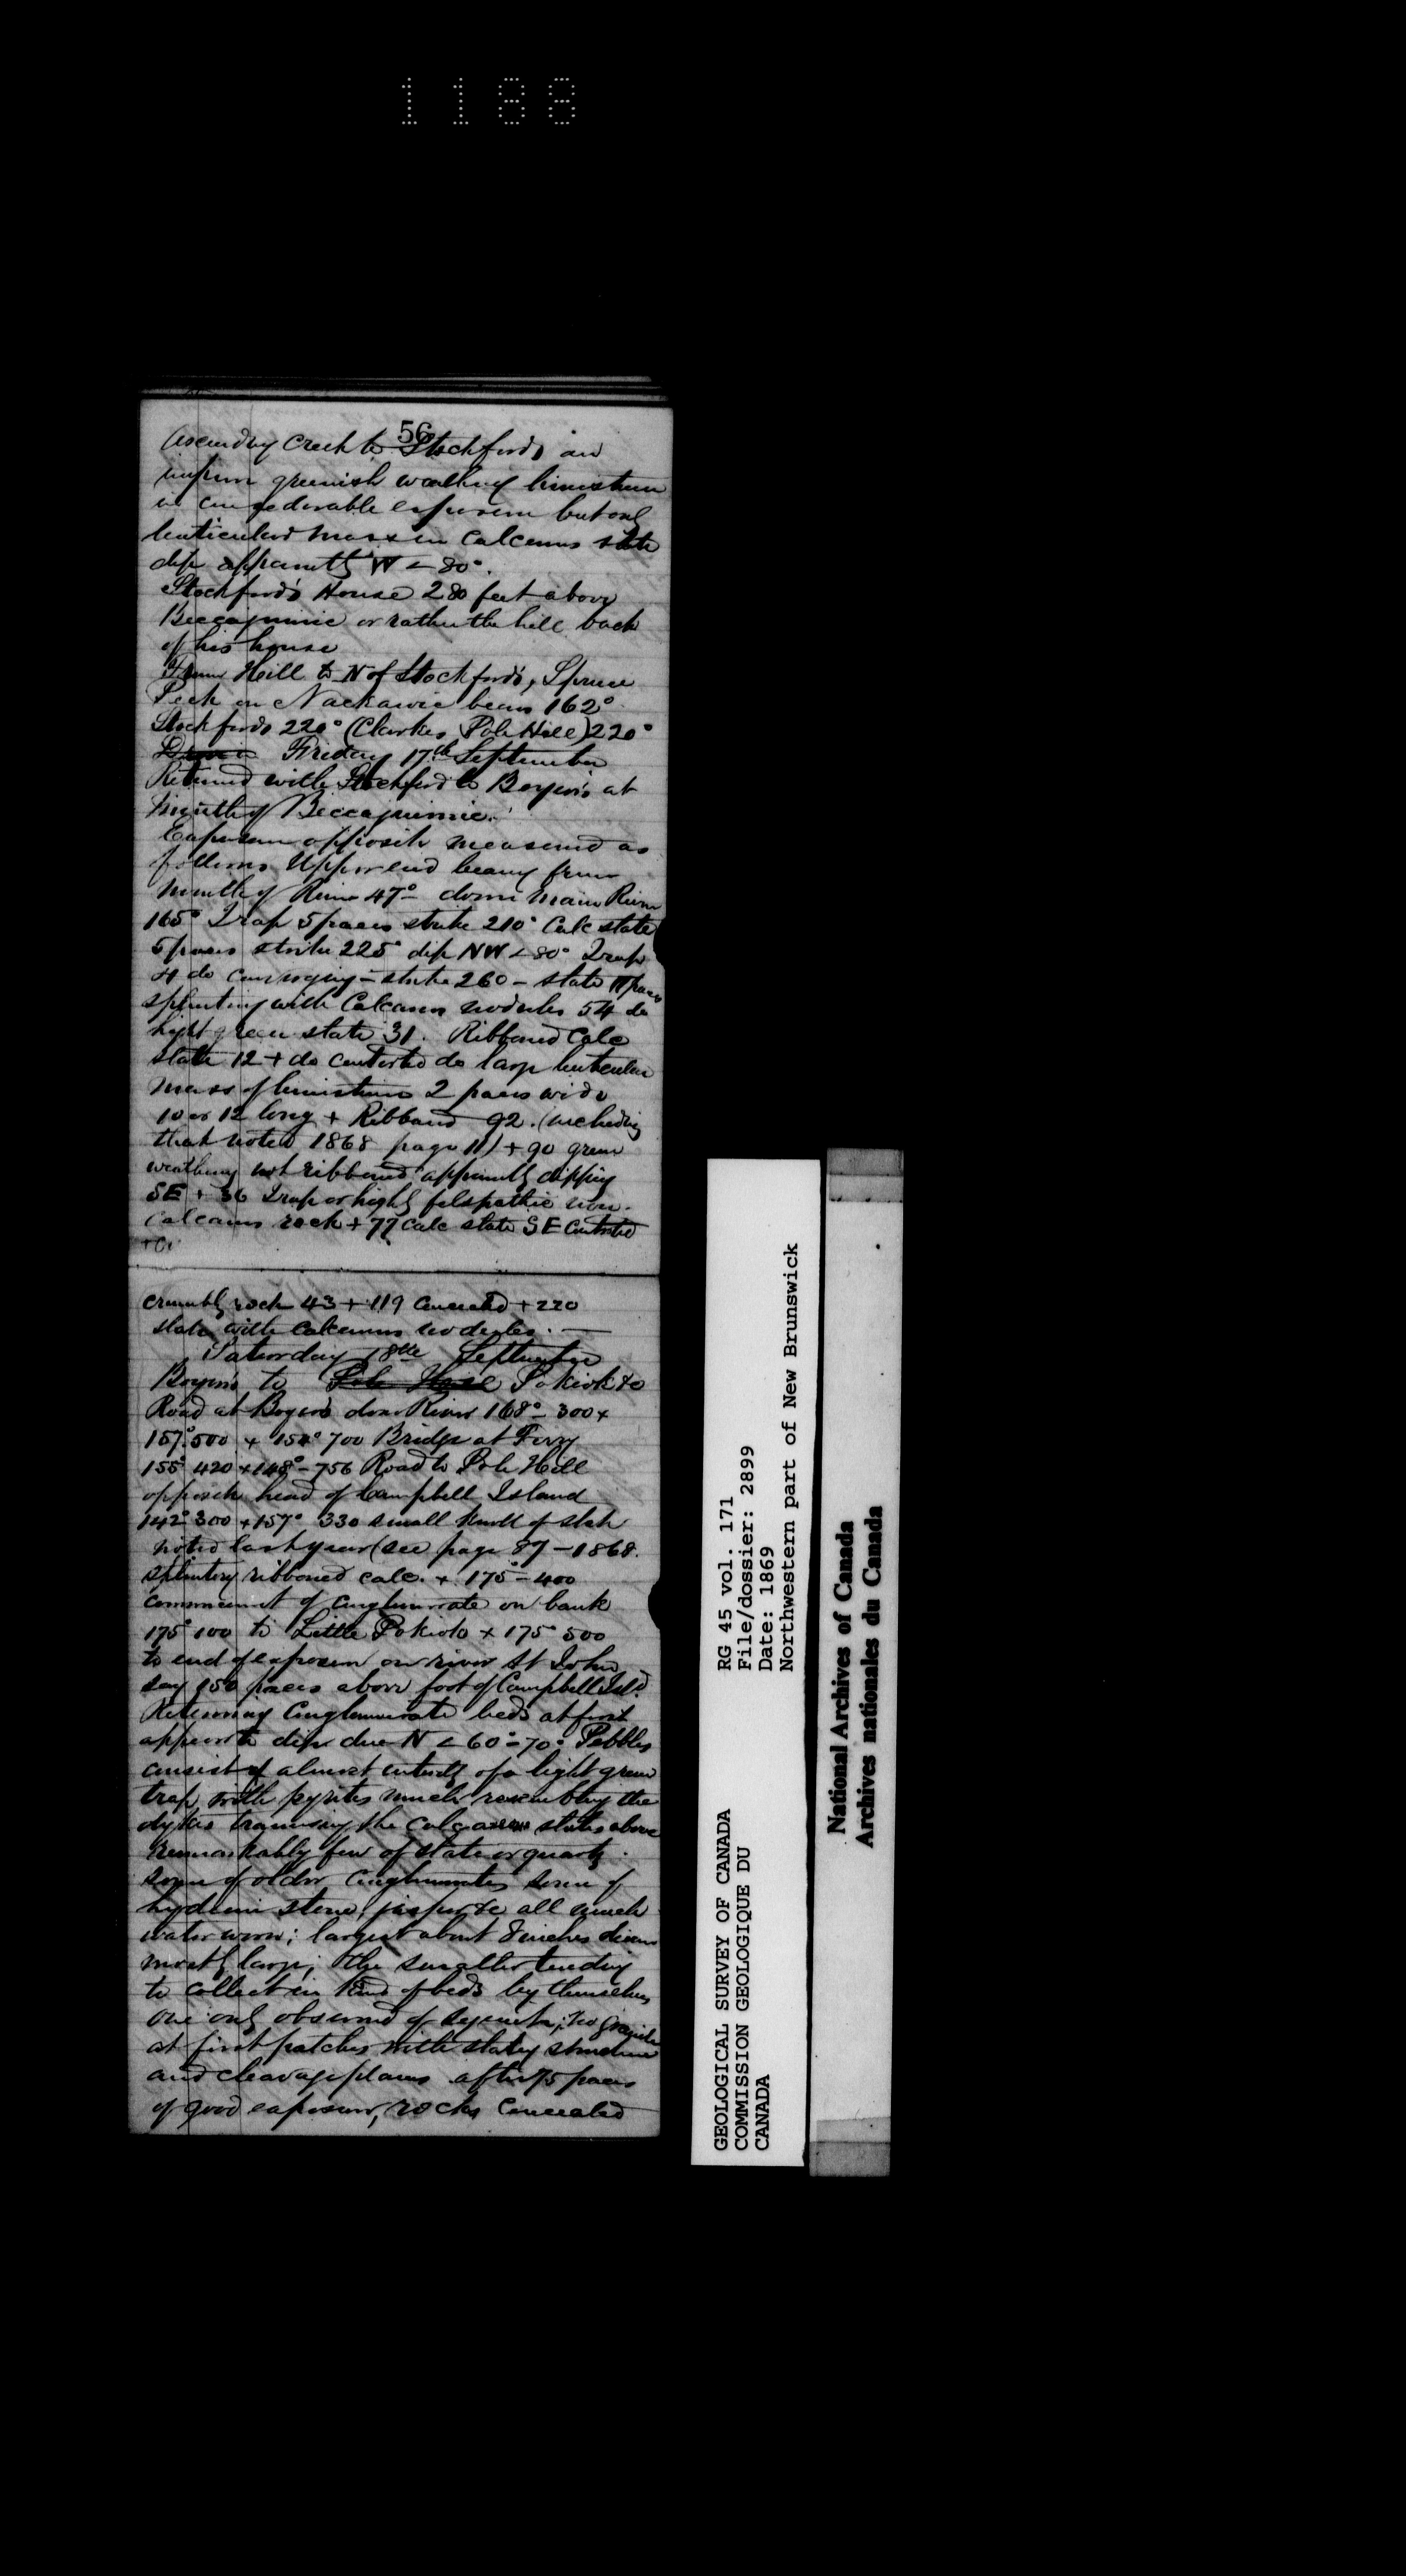 1188
56
Ascending Creek to Stockfords an
impure greenish weathering limestone
in considerable exposure but only
lenticular mass in calcareous slate
dip apparently W < 80°.
Stockford's House 280 feet above
Beccaguimic or rather the hill back
of his house
From Hill to N of Stockford's, Spruce
Peak on Nackawic bears 162°
Stockfords 220° (Clarkes Pole Hill) 220°
Friday 17th September
Returned with Stockford to Boyer's at
mouth of Beccaguimic.
Exposure opposite measured as
follows Upper end bearing from
mouth of River 47° - down main River
165° Trap 5 paces strike 210° Calc slate
5 paces strike 225° dip NW < 80° Trap
4 do converging - strike 260 - slate 11 paces
splintery with Calcareous nodules 54 do
light green slate 31. Ribboned Calc
slate 12 + do contorted do large lenticular
mass of limestone 2 paces wide
10 or 12 long + Ribband 92. (including
that noted 1868 page 11) + 90 green
weathering not ribboned apparently dipping
SE + 36 Trap or highly felspathic non-
calcareous rock + 77 calc slate SE contorted
crumbly rock 43 + 119 concealed + 220
slate with calcareous nodules. —
Saturday 18th September
Boyer's to Pole Hill Pokiok &c
Road at Boyers down River 168° - 300 +
157° 500 + 154° 700 Bridge at Ferry
155° 420 + 148° - 756 Road to Pole Hill
opposite head of Campbell Island
142° 300 + 157° 330 small knoll of slate
noted last year (see page 87 - 1868.
splintery ribboned calc. + 175° - 400
commencement of conglomerate on bank
175° 100 to Little Pokiok + 175° 500
to end of exposure on river St John
say 150 paces above foot of Campbell Isld.
Returning Conglomerate beds at first
appear to dip due N < 60° - 70° Pebbles
consist of almost entirely of a light green
trap with pyrites much resembling the
dykes traversing the calcareous slates above
Remarkably few of slate or quartz.
some of older conglomerates some of
stone, jasper &c all much
water worn; largest about 8 inches diam
mostly large; the smaller tending
to collect in kind of beds by themselves
one only observed of syenite; no granite
at first patches with slaty structure
and cleavage planes after 75 paces
of good exposure, rocks concealed
GEOLOGICAL SURVEY OF CANADA
COMMISSION GEOLOGIQUE DU
CANADA
RG 45 vol. 171
File/dossier: 2899
Date: 1869
Northwestern part of New Brunswick
National Archives of Canada
Archives nationales du Canada